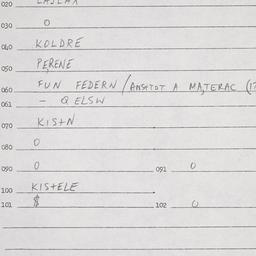 020
030 0
040 KOLDRE
050 PĘRENE
060 FUN FEDERN / ANSHTOT A MĄTERAC
061 - Q ELSW
070 KISTN
080 0
090 0 091 0
100 KISTELE
101 $ 102 0